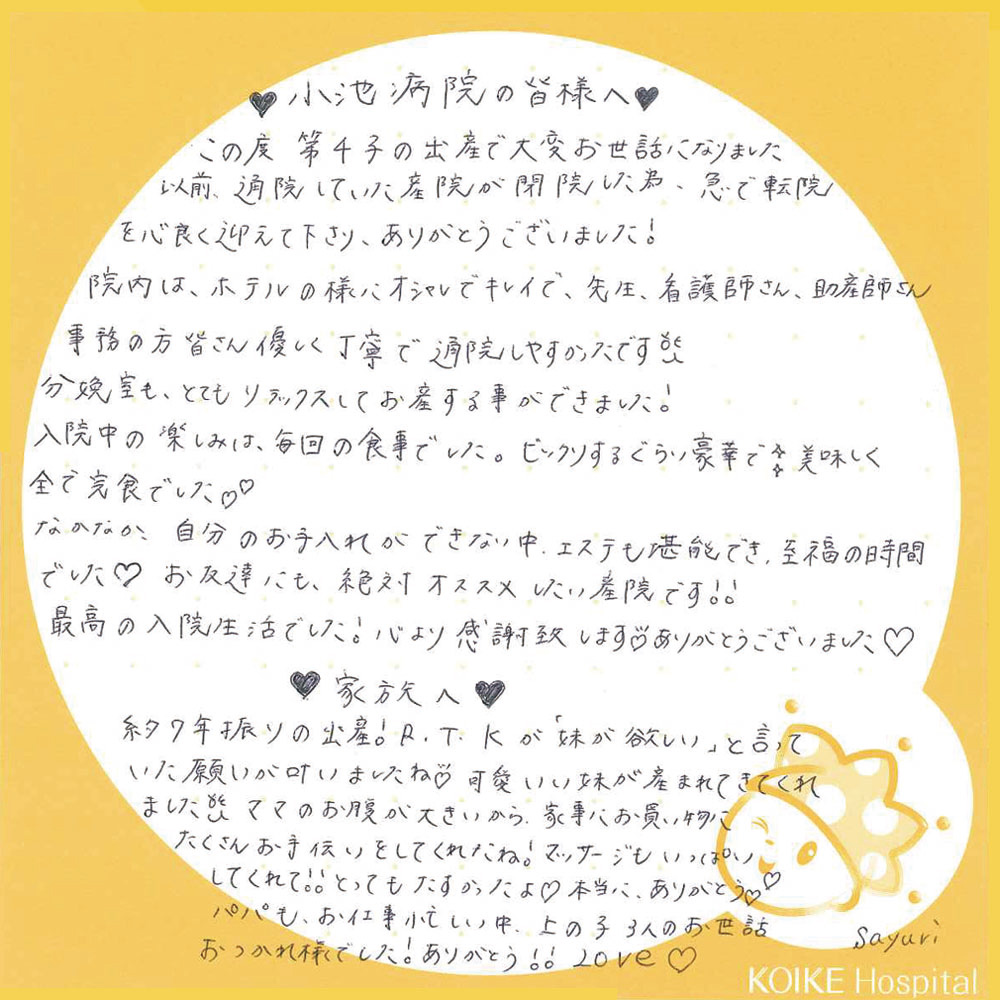 ♥ 小池病院の皆様へ ♥
この度 第4子の出産で大変お世話になりました
以前、通院していた産院が閉院した為、急で転院
を心良く迎えて下さり、ありがとうございました!
院内は、ホテルの様にオシャレでキレイで、先生、看護師さん、助産師さん
事務の方皆さん優しく丁寧で通院しやすかったです
分娩室も、とてもリラックスしてお産する事ができました!
入院中の楽しみは、毎回の食事でした。ビックリするぐらい豪華で美味しく
全て完食でした♡♡
なかなか、自分のお手入れができない中、エステも堪能でき、至福の時間
でした♡ お友達にも、絶対オススメしたい産院です!!
最高の入院生活でした!心より感謝致します♡ありがとうございました♡
♥ 家族へ ♥
約7年振りの出産!R.T.Kが「妹が欲しい」と言って
いた願いが叶いましたね♡可愛いい妹が産まれてきてくれ
ました ママのお腹が大きいから、家事にお買い物に
たくさんお手伝いをしてくれたね!マッサージもいっぱい
してくれて!!とってもたすかったよ♡本当に、ありがとう♡♡
パパも、お仕事忙しい中、上の子3人のお世話
おつかれ様でした!ありがとう!! Love♡
Sayuri
KOIKE Hospital